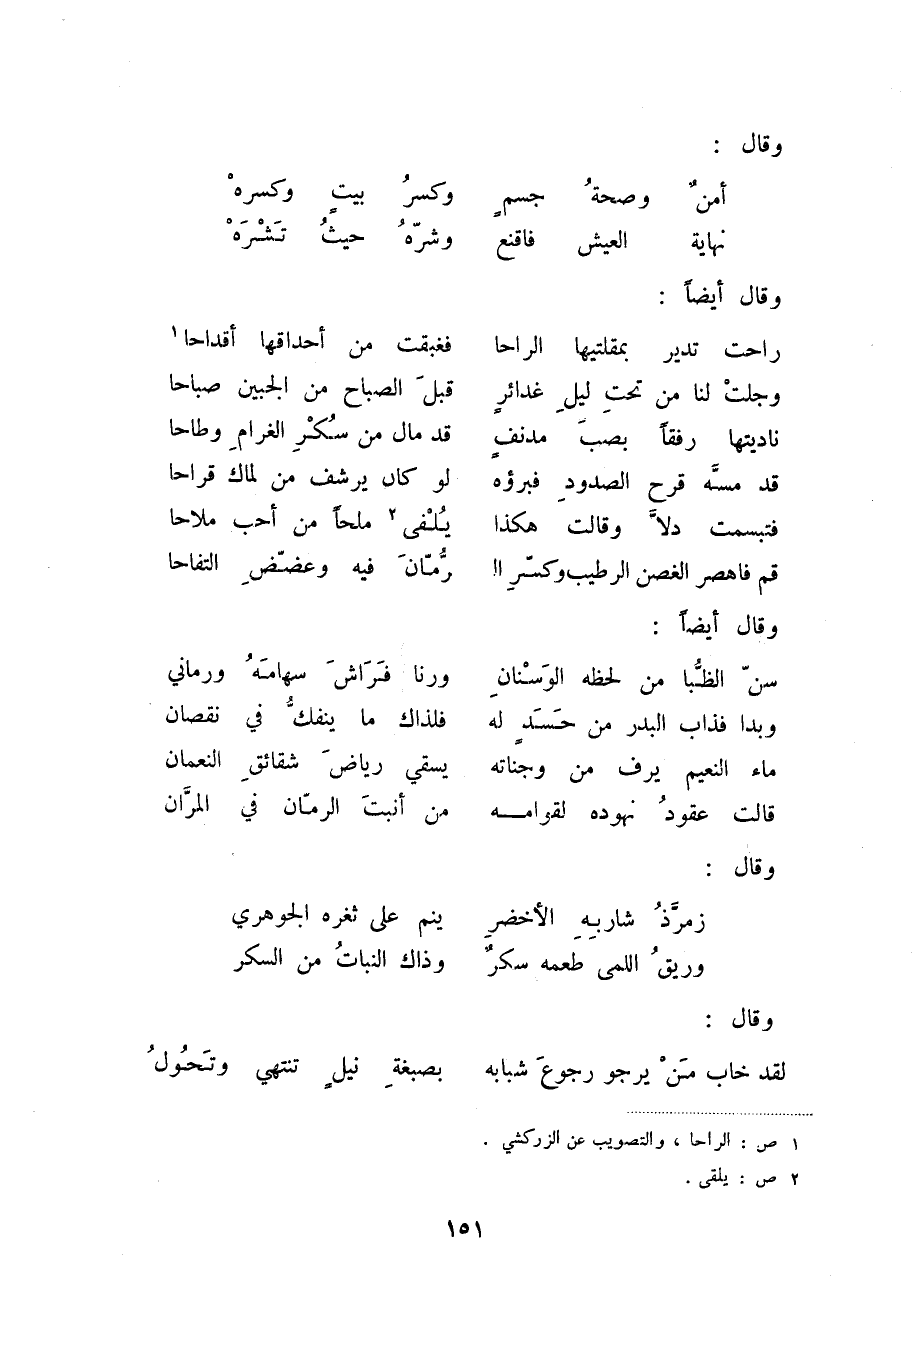 وقال :
أمنٌ وصحةُ جسمٍ وكسرُ بيتٍ وكسرهْ
نهاية العيش فاقنع وشرّهُ حيثُ تَشْرَهْ
وقال أيضاً :
راحت تدير بمقلتيها الراحا فغبقت من أحداقها أقداحا١
وجلتْ لنا من تحتِ ليلِ غدائرٍ قبلَ الصباح من الجبين صباحا
ناديتها رفقاً بصبَ مدنفٍ قد مال من سُكْرِ الغرامِ وطاحا
قد مسَّه قرح الصدودِ فبرؤه لو كان يرشف من لماك قراحا
فتبسمت دلاًّ وقالت هكذا يُلْفى٢ ملحاً من أحب ملاحا
قم فاهصر الغصن الرطيب وكسّرِ الـ رُّمّانَ فيه وعضّضِ التفاحا
وقال أيضاً :
سنّ الظُّبا من لحظه الوَسْنانِ ورنا فَرَاشَ سهامَهُ ورماني
وبدا فذاب البدر من حَسَدٍ له فلذاك ما ينفكُّ في نقصان
ماء النعيم يرف من وجناته يسقي رياضَ شقائقِ النعمان
قالت عقودُ نهوده لقوامـــه من أنبتَ الرمّان في المرَّان
وقال :
زمرَّذُ شاربِهِ الأخضرِ ينم على ثغره الجوهري
وريقُ اللمى طعمه سكرٌ وذاك النباتُ من السكر
وقال :
لقد خاب مَنْ يرجو رجوعَ شبابه بصبغةِ نيلٍ تنتهي وتَحُولُ
١ ص : الراحا ، والتصويب عن الزركشي .
٢ ص : يلقى .
١٥١